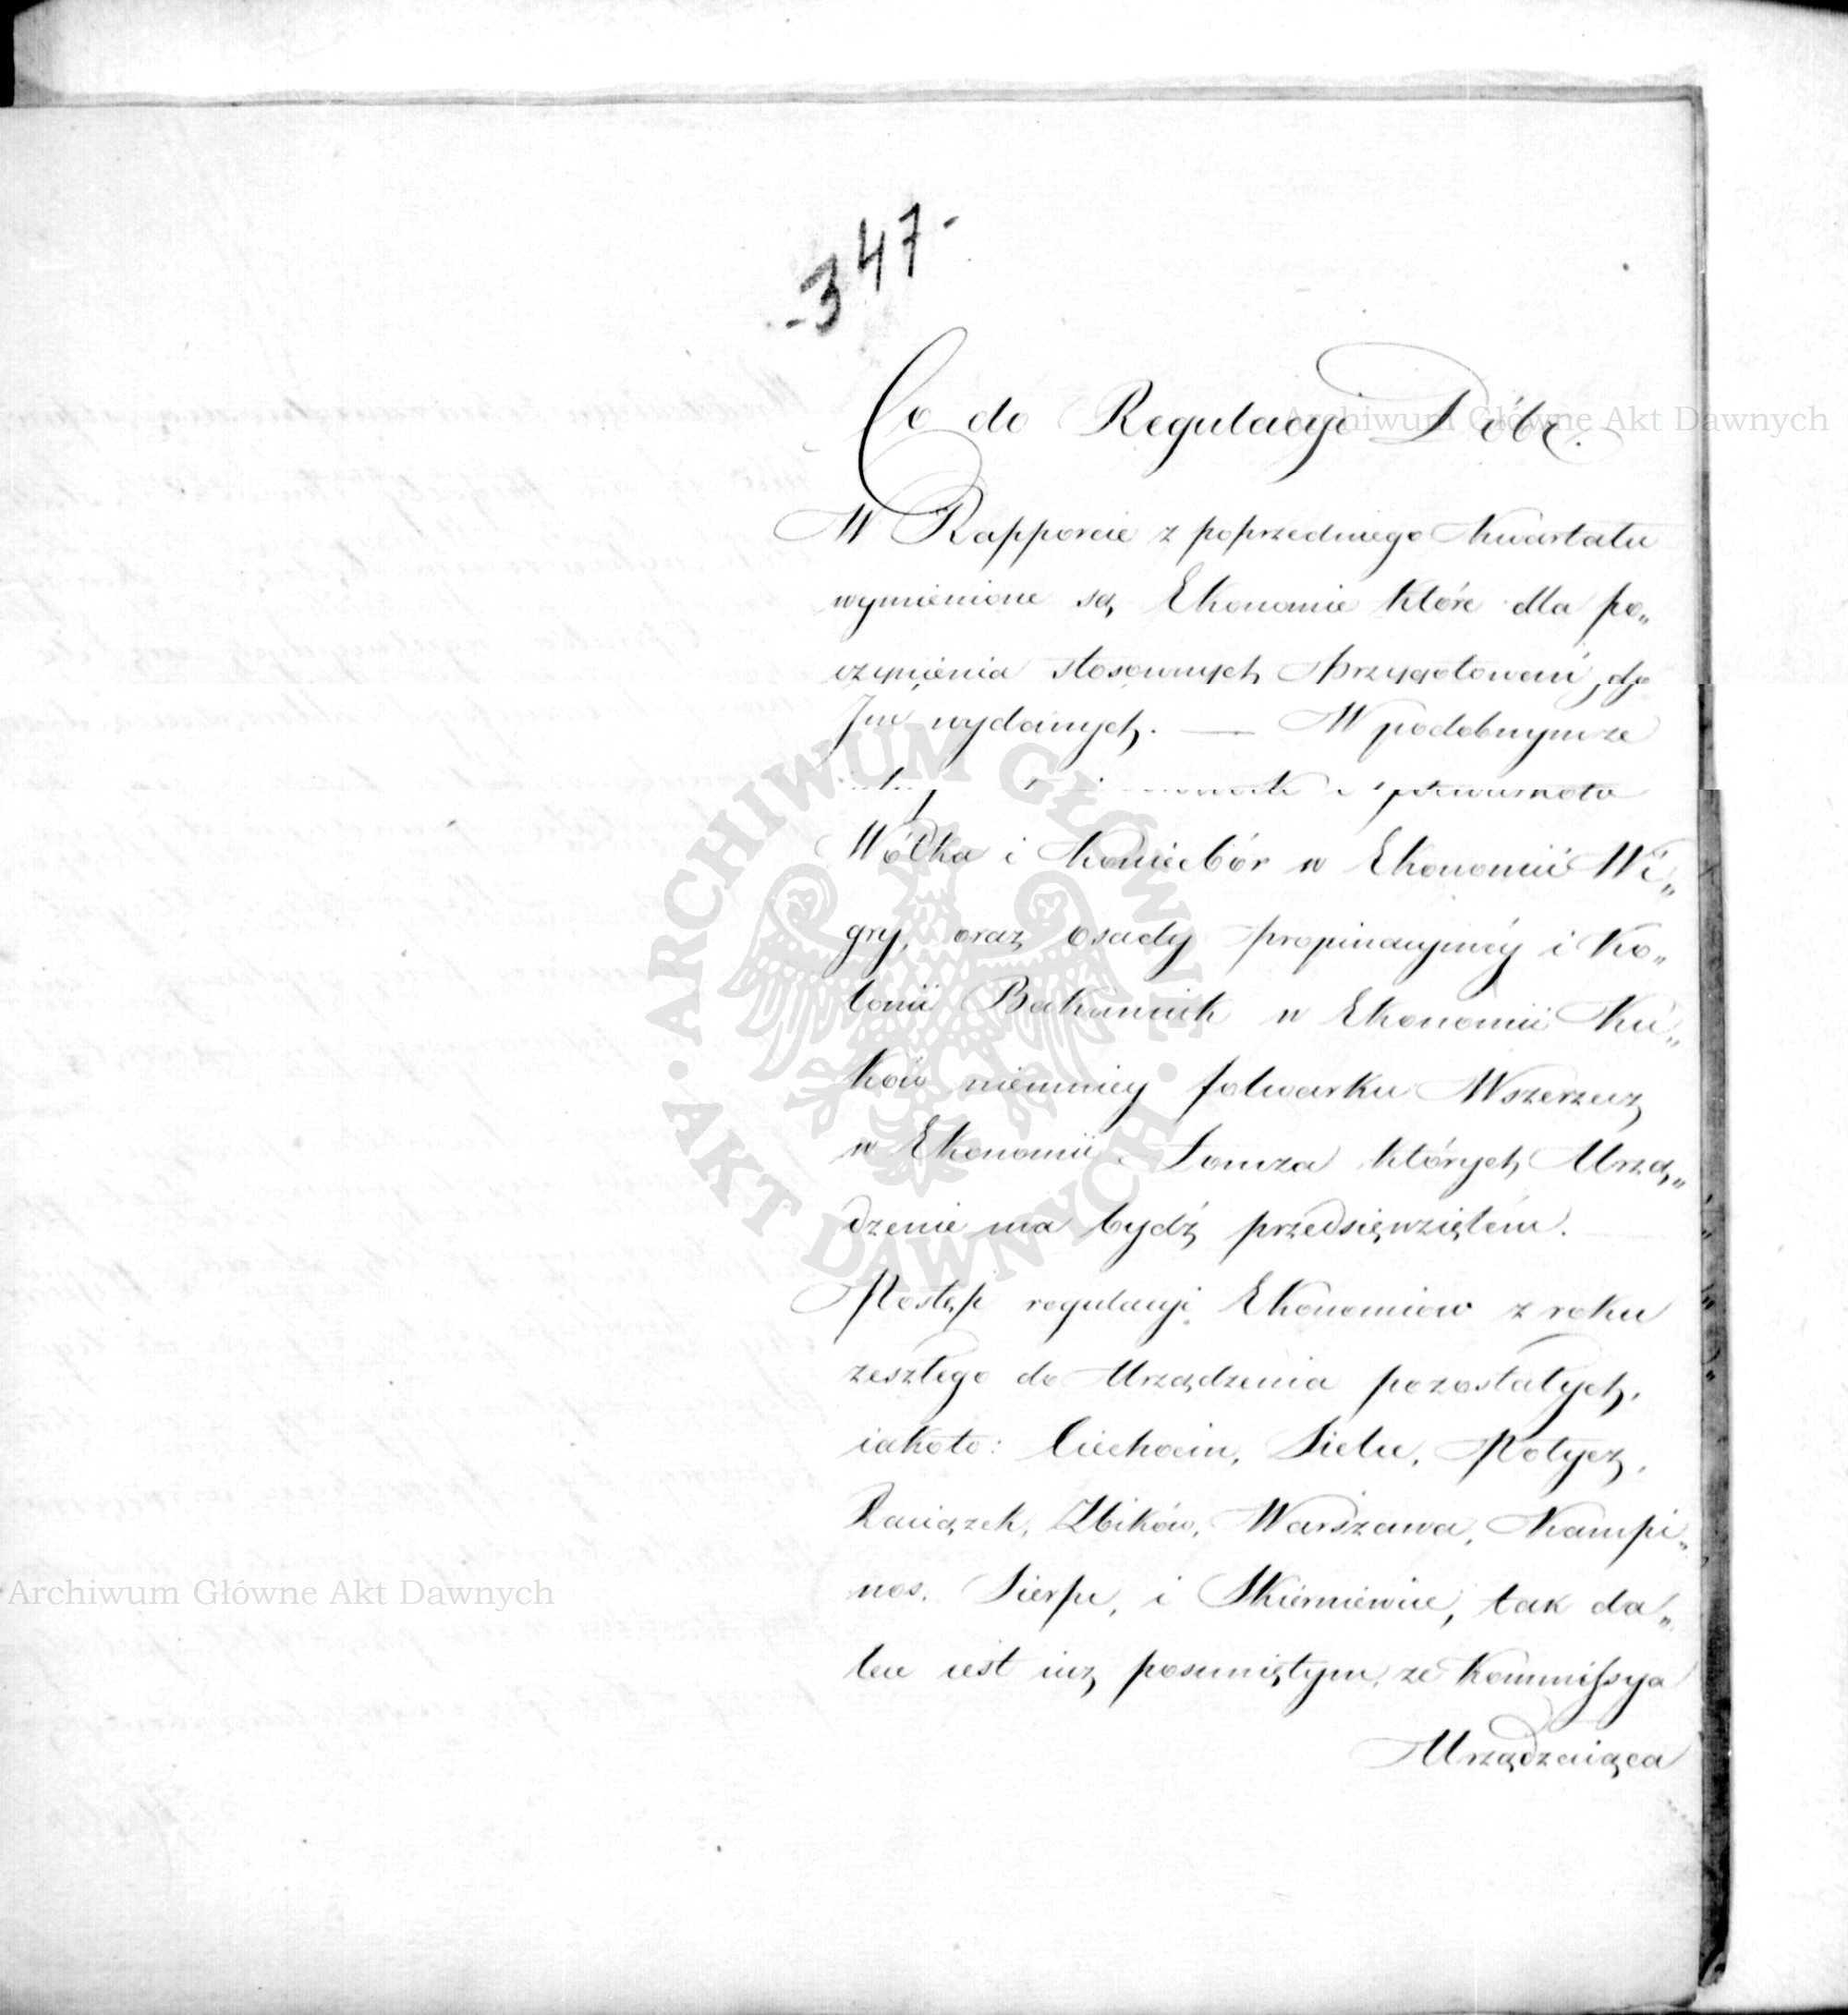 -347-
Co do Regulacyi Dóbr.
W Rapporcie z poprzedniego Kwartału
wymienione są Ekonomie które dla po„
czynienia stosownych przygotowań, do
Jm wydanych. — W podobnymże
folwarków
Wólka i Konicbór w Ekonomii Wi„
gry, oraz osady propinacyinéy i Ko„
lonii Bakamiuk w Ekonomii Ku„
ków niemniey folwarku Wszerzecz
w Ekonomii Łomza których Urzą„
dzenie ma bydź przedsięwziętém.
Postęp regulacyi Ekonomiow z roku
zeszłego do Urządzenia pozostałych,
iakoto: Ciechocin, Sielce, Potycz,
Raciążek, Zbików, Warszawa, Kampi„
nos. Sierpc, i Skierniewice, tak da„
lece iest iuz posuniętym, ze Kommissya
Urządzaiąca
Archiwum Główne Akt Dawnych
Archiwum Główne Akt Dawnych
· ARCHIWUM GŁÓWNE · AKT DAWNYCH